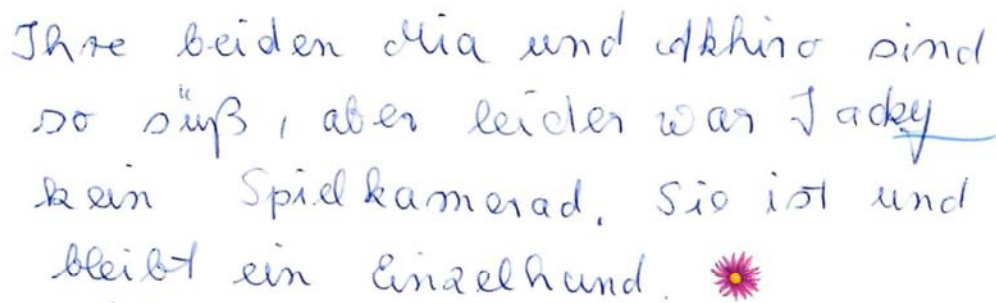 Ihre beiden Mia und Akhiro sind
so süß, aber leider war Jacky
kein Spielkamerad. Sie ist und
bleibt ein Einzelhund.